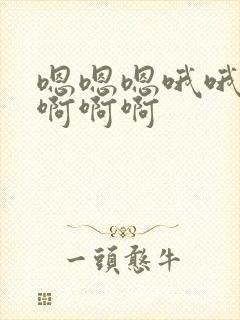 嗯嗯嗯哦哦
啊啊啊
一頭憨牛